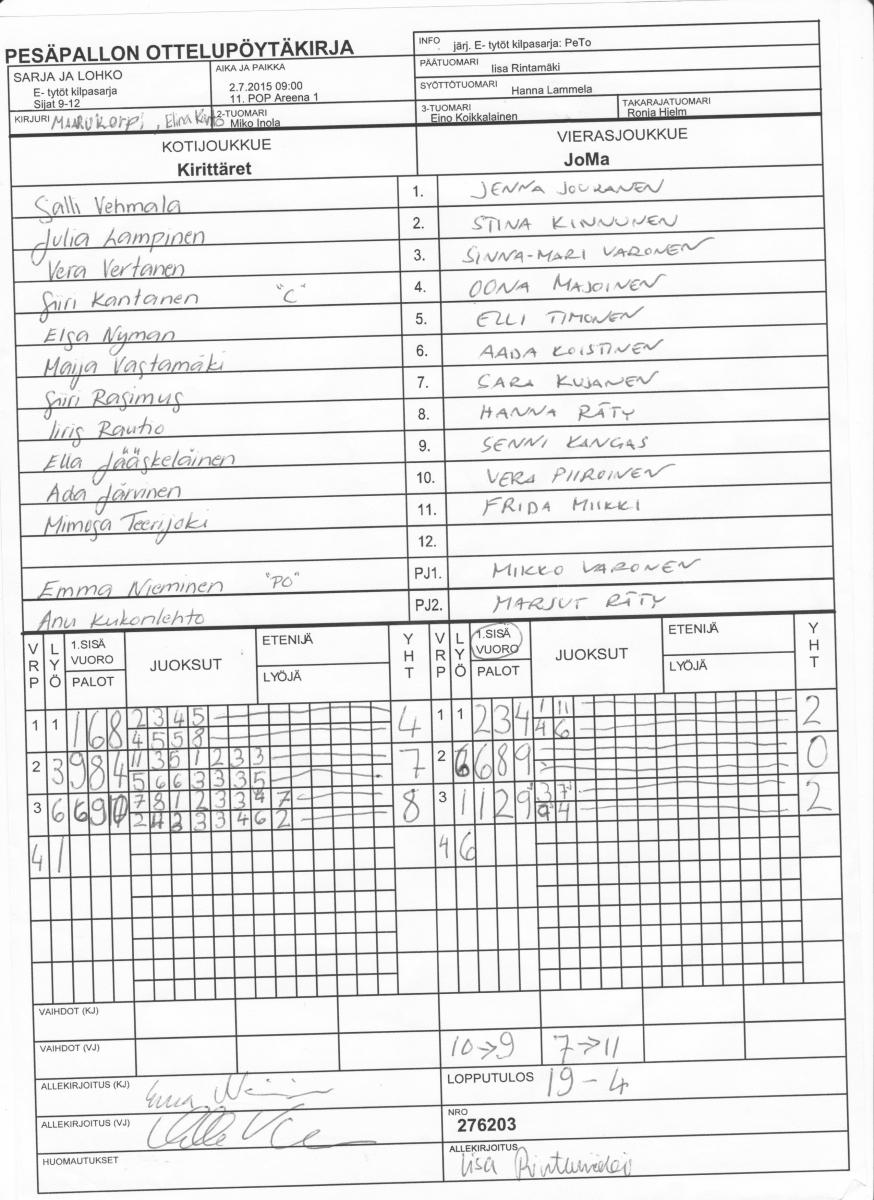 PESÄPALLON OTTELUPÖYTÄKIRJA
INFO järj. E- tytöt kilpasarja: PeTo
SARJA JA LOHKO
E- tytöt kilpasarja
Sijat 9-12
AIKA JA PAIKKA
2.7.2015 09:00
11. POP Areena 1
PÄÄTUOMARI Iisa Rintamäki
SYÖTTÖTUOMARI Hanna Lammela
KIRJURI , Elina
2-TUOMARI
Miko Inola
3-TUOMARI
Eino Koikkalainen
TAKARAJATUOMARI
Ronja Hielm
KOTIJOUKKUE
Kirittäret
VIERASJOUKKUE
JoMa
Salli Vehmala 1. JENNA JOURANEN
Julia Lampinen 2. STINA KINNUNEN
Vera Vertanen 3. SINNA-MARI VARONEN
Siiri Kantanen "C" 4. OONA MAJOINEN
Elsa Nyman 5. ELLI TIMONEN
Maija Vastamäki 6. AADA KOISTINEN
Siiri Rasimus 7. SARA KUJANEN
Iiris Rautio 8. HANNA RÄTY
Ella Jääskeläinen 9. SENNI KANGAS
Ada Järvinen 10. VERA PIIROINEN
Mimosa Teerijoki 11. FRIDA MIIKKI
12.
Emma Nieminen "PO" PJ1. MIKKO VARONEN
Anu Kukonlehto PJ2. MARJUT RÄTY
VRP LYÖ 1.SISÄ VUORO PALOT JUOKSUT ETENIJÄ LYÖJÄ YHT VRP LYÖ 1.SISÄ VUORO PALOT JUOKSUT ETENIJÄ LYÖJÄ YHT
1 1 1 6 8 2 3 4 5 4 1 1 2 3 4 1 11 2
4 5 5 8 4 6
2 3 9 8 4 11 3 5 1 2 3 3 7 2 6 6 8 9 0
5 6 6 3 3 3 5
3 6 6 9 7 8 1 2 3 3 4 7 8 3 1 1 2 9 3 7 2
2 3 3 4 6 2 9 4
4 1 4 6
VAIHDOT (KJ)
VAIHDOT (VJ) 10→9 7→11
ALLEKIRJOITUS (KJ)
LOPPUTULOS 19-4
ALLEKIRJOITUS (VJ)
NRO
276203
HUOMAUTUKSET
ALLEKIRJOITUS
Iisa Rintamäki